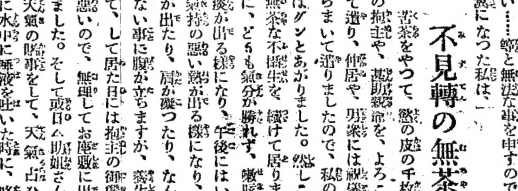 い……等と無法な事を申すので
翼になつた私は、
不見轉の無茶
苦茶をやつて、慾の皮の千
の抱主や、甚助親爺を、よろこ
て遣り、仲居や、男衆には祝儀
らまいて遣りましたので、私の
はグンとあがりました。然し
無茶な不攝生を續けて居りま
に、どうも氣分が勝れず、咳
痰が出る樣になり、午後にはい
氣持の惡い熱が出る樣になり、
が出たり、肩が凝つたり、なん
ない事に腹が立ちますが、養生
て、して居た日には抱主の御機
惡いので、無理してお座敷に出
ました。そして或日
天氣の時事をして、天氣
に水中に唾液を吐いた時に、